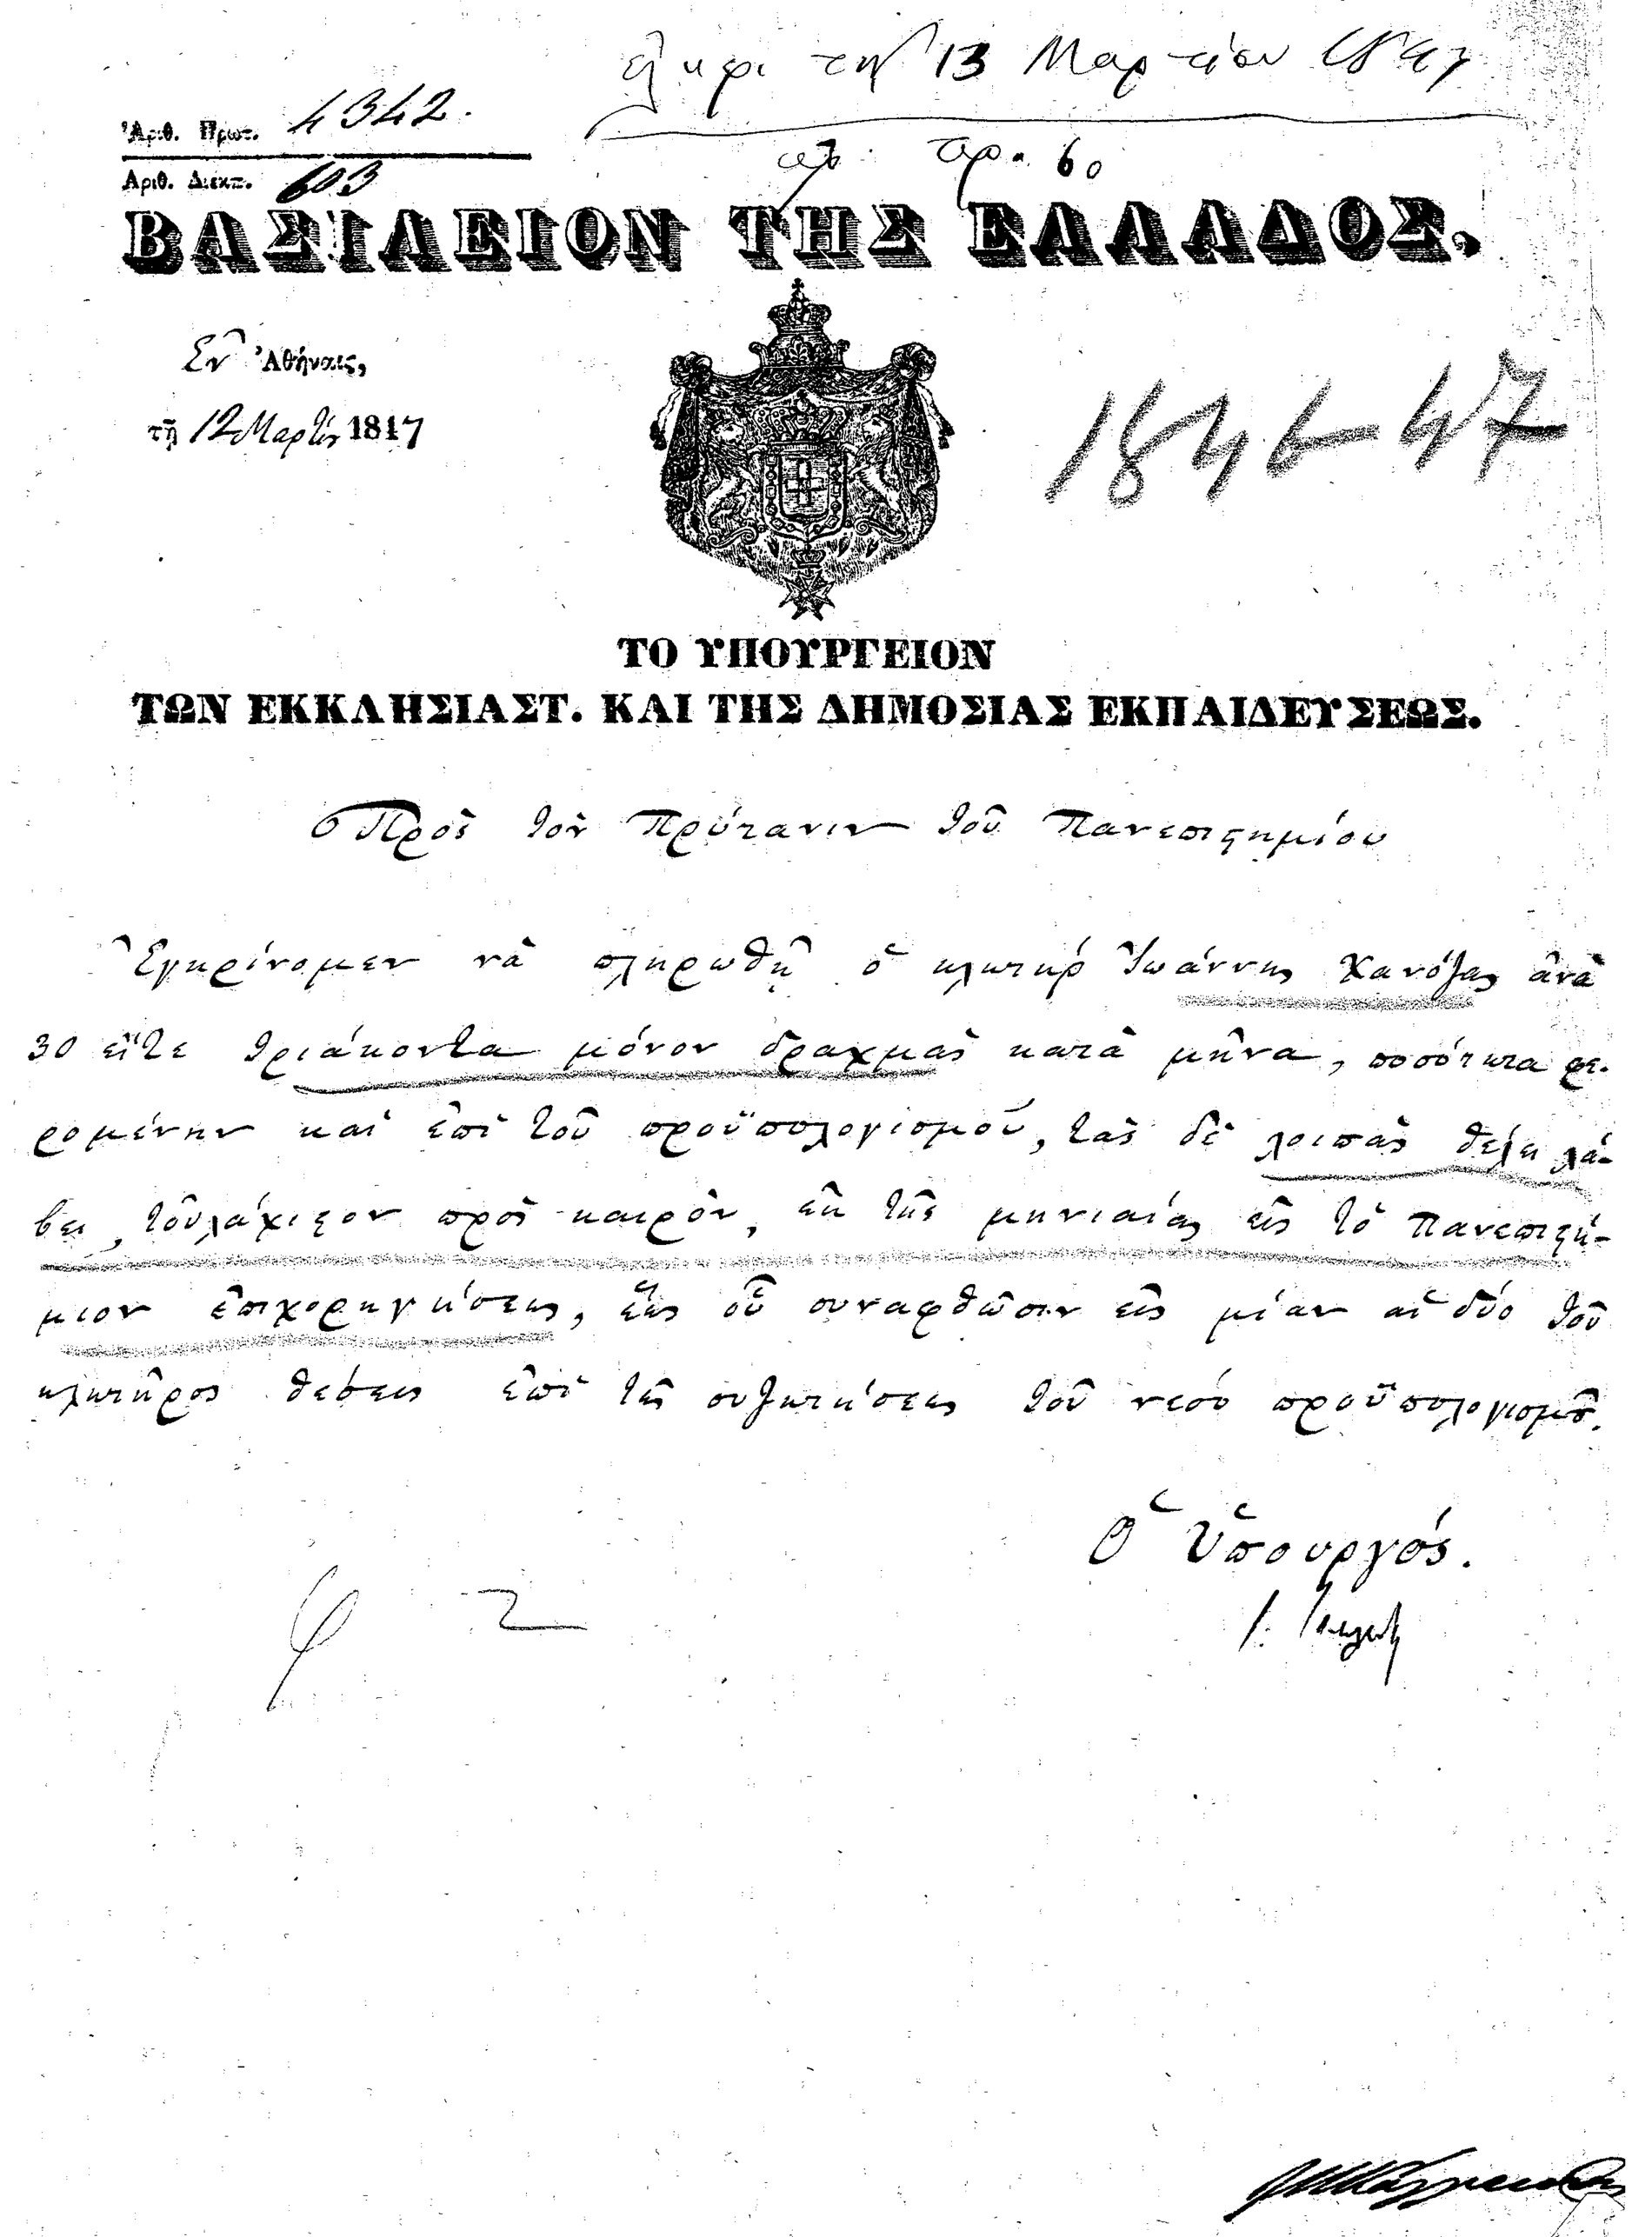 ἐλήφθη τὴν 13 Μαρτίου 1847
ἀρ. πρ. 60
Ἀριθ. Πρωτ. 4342.
Αριθ. Διεκπ. 603
ΒΑΣΙΛΕΙΟΝ ΤΗΣ ΕΛΛΑΔΟΣ.
Ἐν Ἀθήναις,
τῇ 12 Μαρτίου 1847
1846-47
ΤΟ ΥΠΟΥΡΓΕΙΟΝ
ΤΩΝ ΕΚΚΛΗΣΙΑΣΤ. ΚΑΙ ΤΗΣ ΔΗΜΟΣΙΑΣ ΕΚΠΑΙΔΕΥΣΕΩΣ.
Πρὸς τὸν Πρύτανιν τοῦ Πανεπιστημίου
Ἐγκρίνομεν νὰ πληρωθῇ ὁ κλητὴρ Ἰωάννης ἀνὰ
30 εἴτε τριάκοντα μόνον δραχμὰς κατὰ μῆνα, ποσότητα φε-
ρομένην καὶ ἐπὶ τοῦ προϋπολογισμοῦ, τὰς δὲ λοιπὰς θέλει λά-
βει, τοὐλάχιστον πρὸς καιρὸν, ἐκ τῆς μηνιαίας εἰς τὸ Πανεπιστή-
μιον ἐπιχορηγήσεως, ἕως οὗ συναφθῶσιν εἰς μίαν αἱ δύο τοῦ
κλητῆρος θέσεις ἐπὶ τῆς συζητήσεως τοῦ νέου προϋπολογισμοῦ.
Ὁ Ὑπουργός.